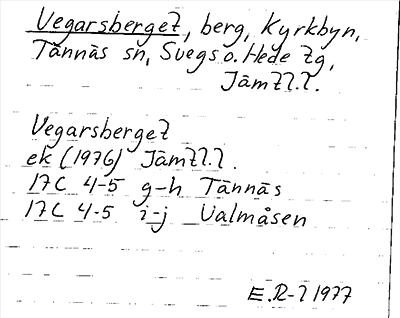 Vegarsberget, berg, Kyrkbyn,
Tännäs sn, Svegs o. Hede tg,
Jämtl.l.
Vegarsberget
ek (1976) Jämtl.l.
17C 4-5 g-h Tännäs
17C 4-5 i-j Valmåsen
E.R-l 1977